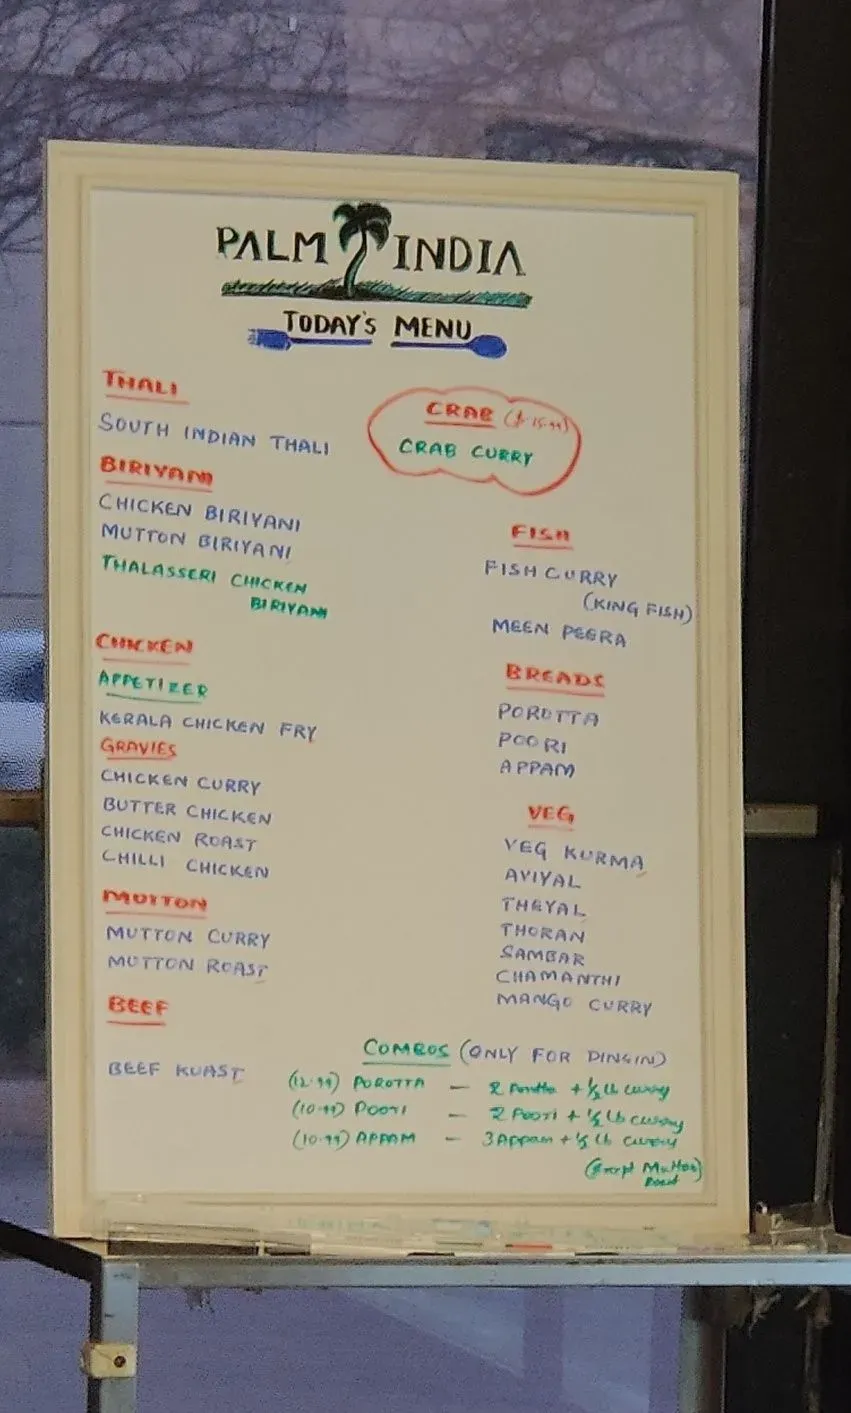 PALM INDIA
TODAY'S MENU
THALI
SOUTH INDIAN THALI
BIRIYANI
CHICKEN BIRIYANI
MUTTON BIRIYANI
THALASSERI CHICKEN
BIRIYANI
CHICKEN
APPETIZER
KERALA CHICKEN FRY
GRAVIES
CHICKEN CURRY
BUTTER CHICKEN
CHICKEN ROAST
CHILLI CHICKEN
MUTTON
MUTTON CURRY
MUTTON ROAST
BEEF
BEEF ROAST
CRAB ($15.99)
CRAB CURRY
FISH
FISH CURRY
(KING FISH)
MEEN PEERA
BREADS
POROTTA
POORI
APPAM
VEG
VEG KURMA
AVIYAL
THEYAL
THORAN
SAMBAR
CHAMANTHI
MANGO CURRY
COMBOS (ONLY FOR DINGIN)
(12.99) POROTTA - 2 Porotta + ½ lb curry
(10.99) POORI - 2 Poori + ½ lb curry
(10.99) APPAM - 3 Appam + ½ lb curry
(Except Mutton
Roast)